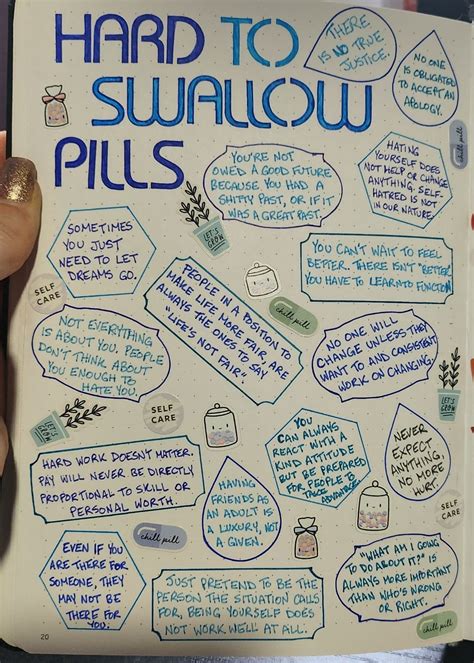 HARD TO
SWALLOW
PILLS
THERE
IS NO TRUE
JUSTICE.
NO ONE
IS OBLIGATED
TO ACCEPT AN
APOLOGY.
chill pill
YOU'RE NOT
OWED A GOOD FUTURE
BECAUSE YOU HAD A
SHITTY PAST, OR IF IT
WAS A GREAT PAST.
HATING
YOURSELF DOES
NOT HELP OR CHANGE
ANYTHING. SELF-
HATRED IS NOT
IN OUR NATURE.
SOMETIMES
YOU JUST
NEED TO LET
DREAMS GO.
LET'S
GROW
YOU CAN'T WAIT TO FEEL
BETTER. THERE ISN'T "BETTER"
YOU HAVE TO LEARN TO FUNCTION
SELF
CARE
PEOPLE IN A POSITION TO
MAKE LIFE MORE FAIR, ARE
ALWAYS THE ONES TO SAY
"LIFE'S NOT FAIR".
chill pill
NOT EVERYTHING
IS ABOUT YOU. PEOPLE
DON'T THINK ABOUT
YOU ENOUGH TO
HATE YOU.
NO ONE WILL
CHANGE UNLESS THEY
WANT TO AND CONSISTENT
WORK ON CHANGING.
LET'S
GROW
SELF
CARE
LET'S
GROW
YOU
CAN ALWAYS
REACT WITH A
KIND ATTITUDE
BUT BE PREPARED
FOR PEOPLE TO
TAKE
ADVANTAGE
NEVER
EXPECT
ANYTHING,
NO MORE
HURT.
HARD WORK DOESN'T MATTER.
PAY WILL NEVER BE DIRECTLY
PROPORTIONAL TO SKILL OR
PERSONAL WORTH.
HAVING
FRIENDS AS
AN ADULT IS
A LUXURY, NOT
A GIVEN.
SELF
CARE
chill pill
EVEN IF YOU
ARE THERE FOR
SOMEONE, THEY
MAY NOT BE
THERE FOR
YOU.
"WHAT AM I GOING
TO DO ABOUT IT?" IS
ALWAYS MORE IMPORTANT
THAN WHO'S WRONG
OR RIGHT.
JUST PRETEND TO BE THE
PERSON THE SITUATION CALLS
FOR, BEING YOURSELF DOES
NOT WORK WELL AT ALL.
chill pill
20